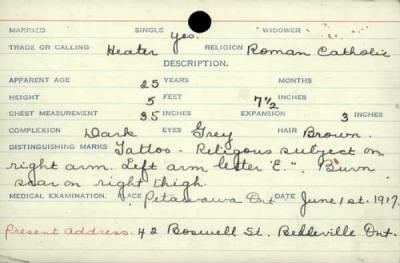 MARRIED SINGLE yes. WIDOWER
TRADE OR CALLING Heater RELIGION Roman Catholic
DESCRIPTION.
APPARENT AGE 25 YEARS MONTHS
HEIGHT 5 FEET 7 1/2 INCHES
CHEST MEASUREMENT 35 INCHES EXPANSION 3 INCHES
COMPLEXION Dark EYES Grey HAIR Brown.
DISTINGUISHING MARKS Tattoo - Religous subject on
right arm. Left arm letter "E.". Burn
scar on right thigh.
MEDICAL EXAMINATION. PLACE Petawawa Ont DATE June 1st. 1917.
Present Address. 42 Boswell St. Belleville Ont.